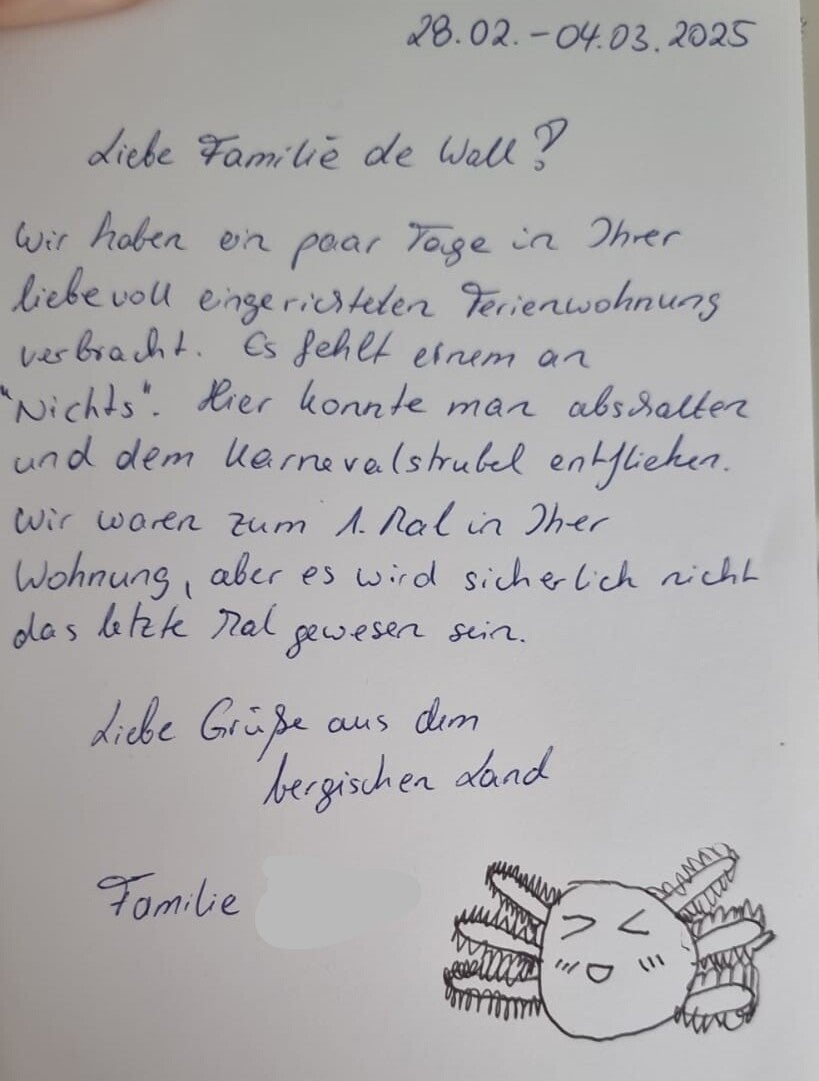 28.02. - 04.03.2025
Liebe Familie de Wall!
Wir haben ein paar Tage in Ihrer
liebevoll eingerichteten Ferienwohnung
verbracht. Es fehlt einem an
"Nichts". Hier konnte man abschalten
und dem Karnevalstrubel entfliehen.
Wir waren zum 1. Mal in Ihrer
Wohnung, aber es wird sicherlich nicht
das letzte Mal gewesen sein.
Liebe Grüße aus dem
bergischen Land
Familie